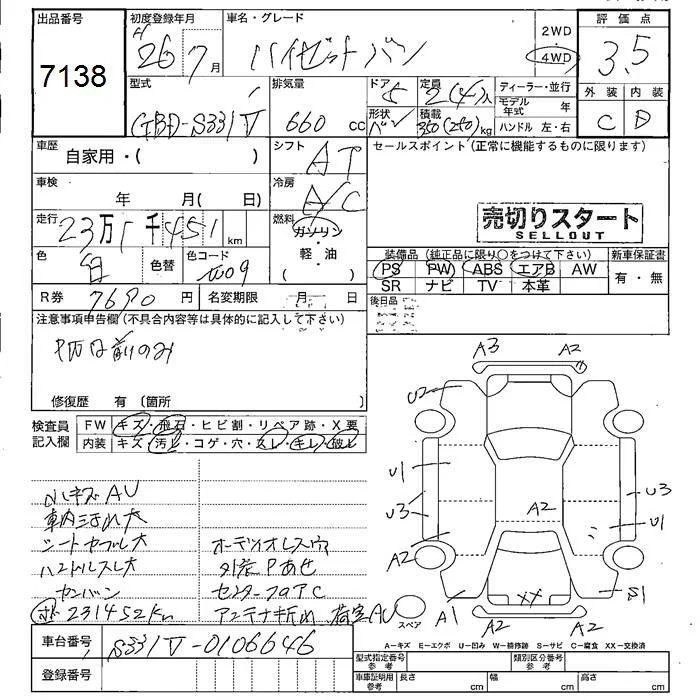 出品番号 7138
初度登録年月 H 26年 7月
車名・グレード ハイゼットバン
2WD
4WD
評価点 3.5
外装 C 内装 D
型式 GBD-S331V
排気量 660 cc
ドア 5
形状 バン
定員 2(4)人
積載 350(250)kg
ディーラー・並行
モデル年式 年
ハンドル 左・右
車歴 自家用・( )
シフト AT
セールスポイント(正常に機能するものに限ります)
車検 年 月( 日)
冷房 A/C
売切りスタート
SELLOUT
走行 23万1千451 km
燃料 ガソリン・軽・油( )
装備品(純正品に限り○をつけて下さい)
新車保証書
PS PW ABS エアB AW
有・無
SR ナビ TV 本革
色 白
色替
色コード W09
R券 7690円
名変期限 月 日
後日品
注意事項申告欄(不具合内容等は具体的に記入して下さい)
修復歴 有(箇所 )
検査員記入欄
FW キズ・飛石・ヒビ割・リペア跡・X要
内装 キズ・汚レ・コゲ・穴・スレ・キレ・破レ
小キズAU
車内汚れ大
シートヤブレ大
オーディオレス
ハンドルスレ大
外装Pあせ
センターフロアC
231452km
アンテナ折れ 荷室AU
A3 A2
U2
U1
U3
A2
A2
U3
U1
XX
A1
S1
A2 A2
スペア
A-キズ E-エクボ U-凹み W-補修跡 S-サビ C-腐食 XX-交換済
車台番号 S331V-0106646
登録番号
型式指定番号 参考
類別区分番号 参考
車庫証明用 参考 長さ cm 幅 cm 高さ cm